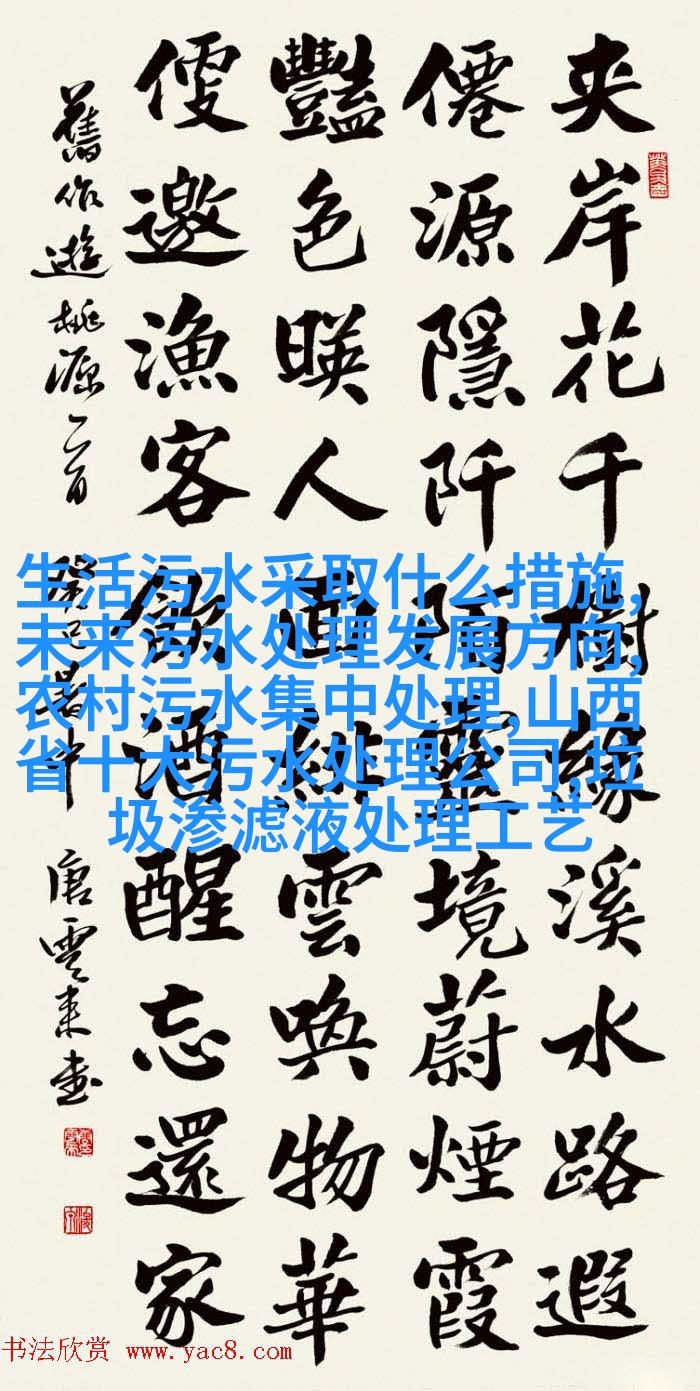 夾岸花千樹緣溪水路遐
僊源隱阡陌靈境蔚煙霞
豔色暎人面緋雲喚物華
便邀漁客飲酒醒忘還家
舊作遊桃源二首 癸巳暑中 唐雲來書
生活污水采取什么措施,
未来污水处理发展方向,
农村污水集中处理,山西
省十大污水处理公司,垃
圾渗滤液处理工艺
书法欣赏 www.yac8.com